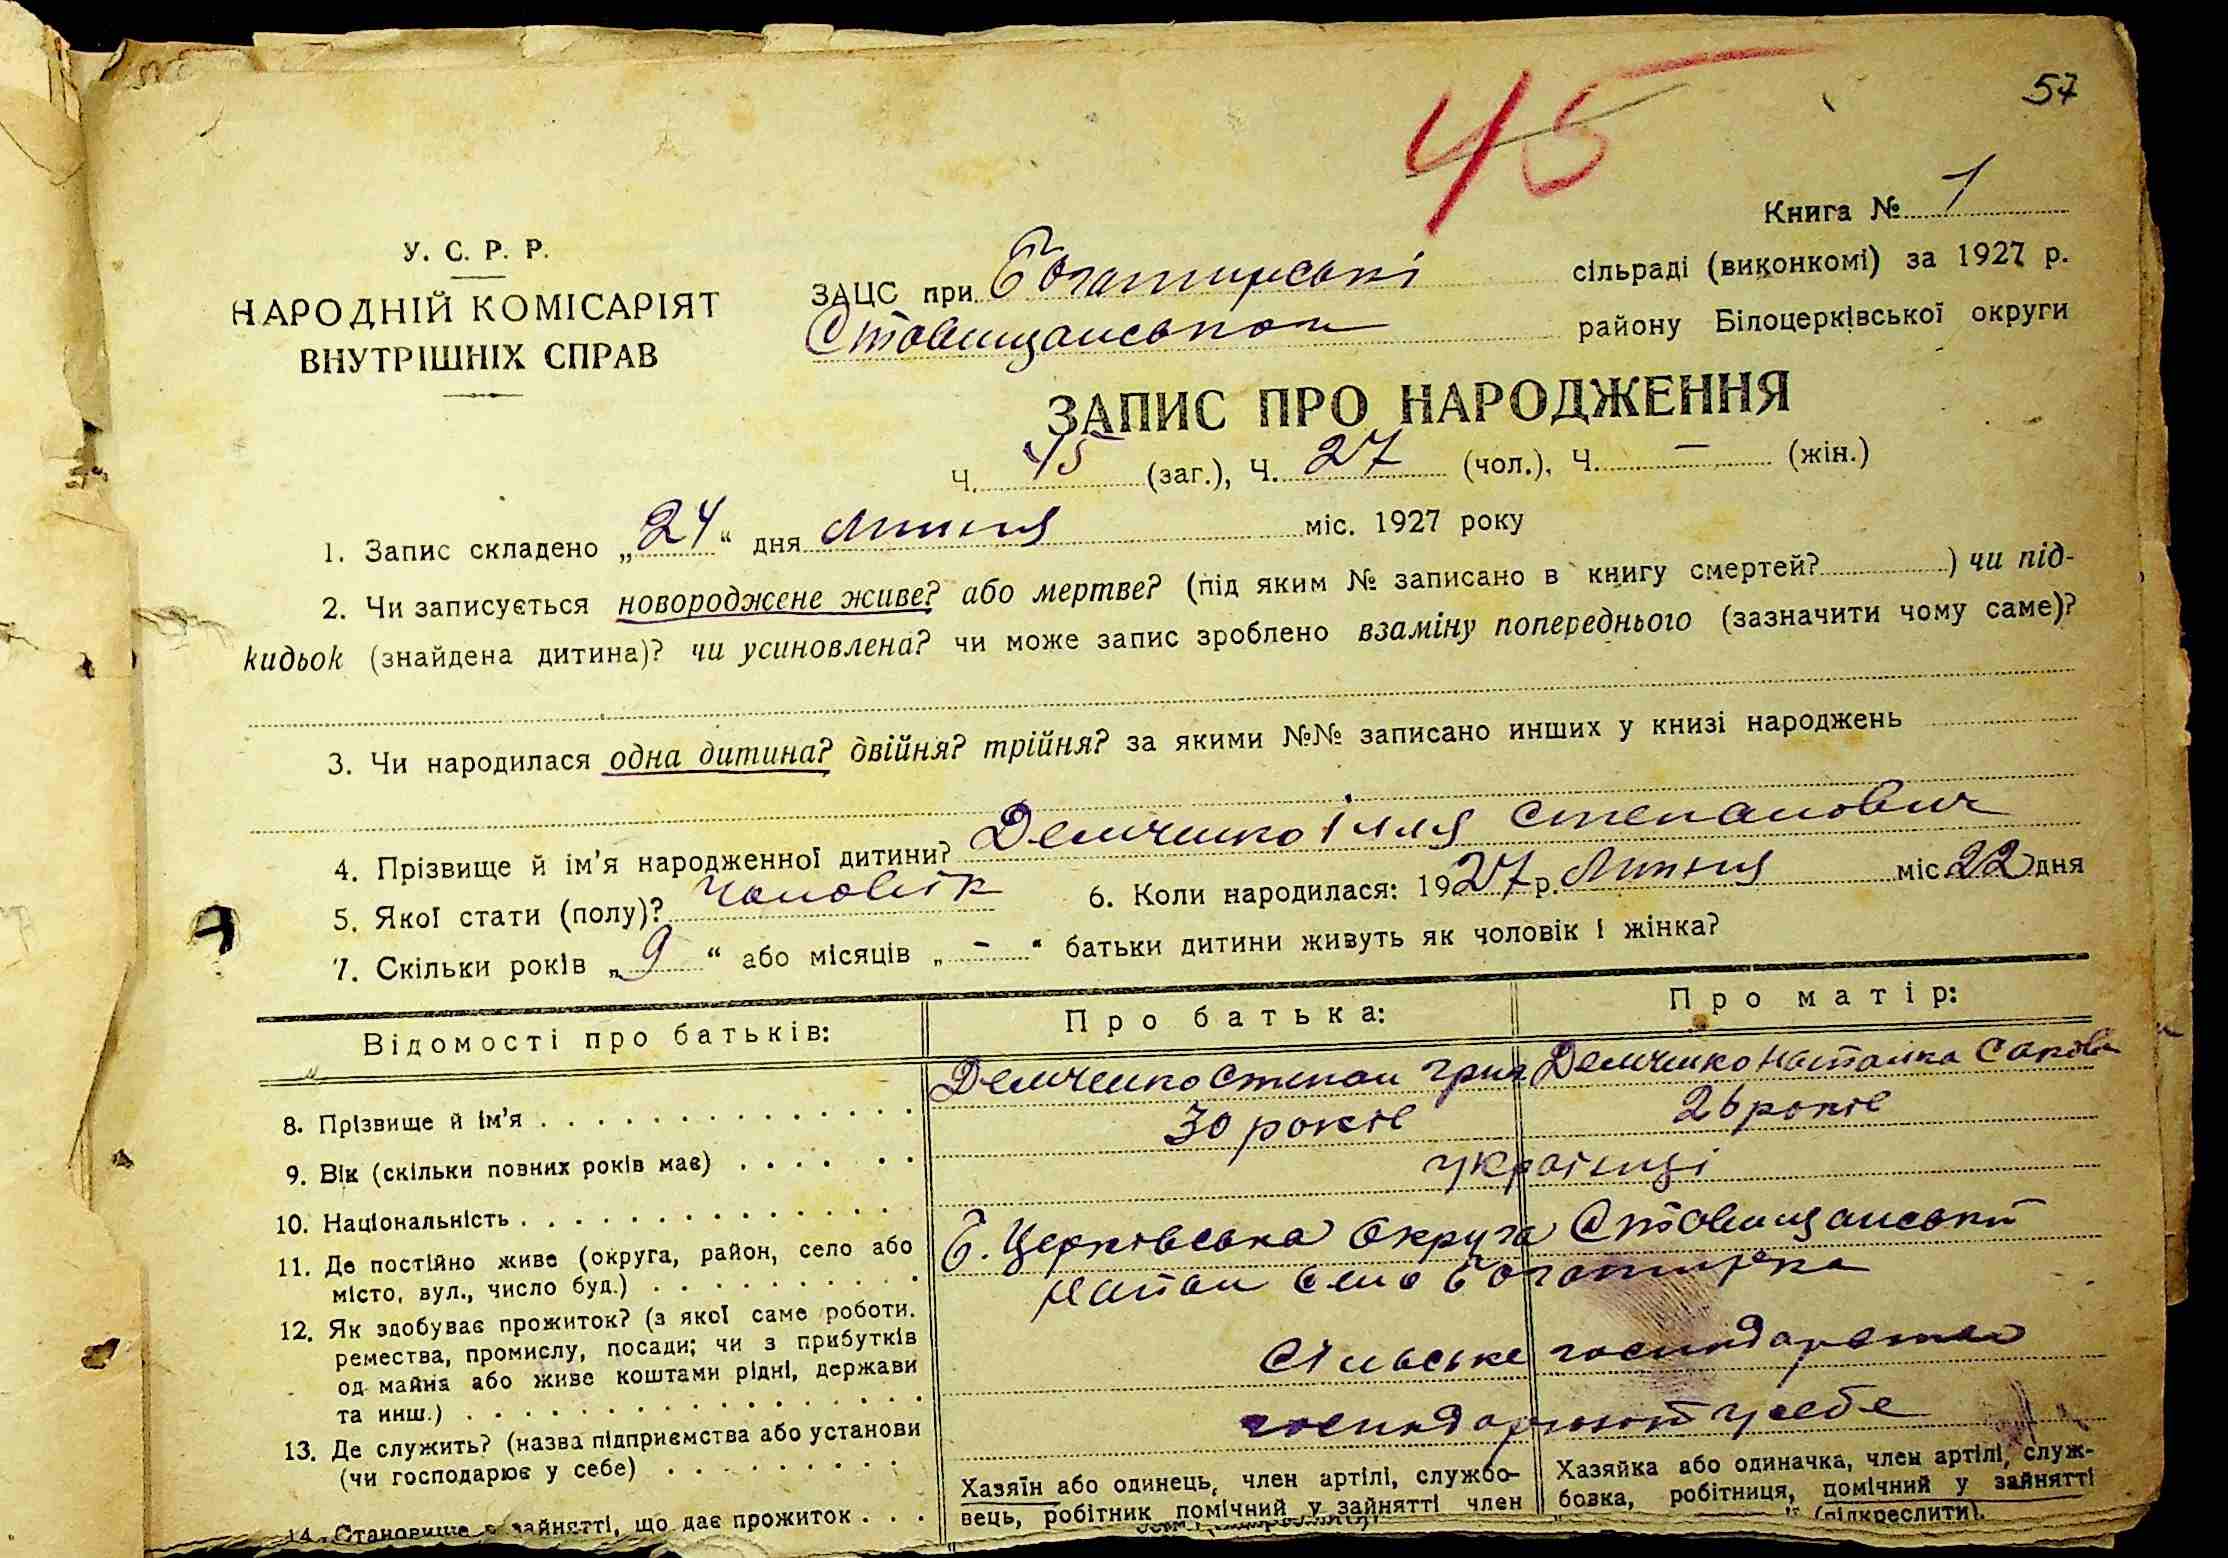 57
45
Книга № 1
У. С. Р. Р.
НАРОДНІЙ КОМІСАРІЯТ
ВНУТРІШНІХ СПРАВ
ЗАЦС при Богатирські сільраді (виконкомі) за 1927 р.
Ставищанського району Білоцерківської округи
ЗАПИС ПРО НАРОДЖЕННЯ
Ч. 45 (заг.), Ч. 27 (чол.), Ч. — (жін.)
1. Запис складено „24“ дня Липня міс. 1927 року
2. Чи записується новороджене живе? або мертве? (під яким № записано в книгу смертей? ) чи під-
кидьок (знайдена дитина)? чи усиновлена? чи може запис зроблено взаміну попереднього (зазначити чому саме)?
3. Чи народилася одна дитина? двійня? трійня? за якими №№ записано инших у книзі народжень
4. Прізвище й ім'я народженної дитини? Демченко Ілля Степанович
5. Якої стати (полу)? чоловік 6. Коли народилася: 1927 р. Липня міс 22 дня
7. Скільки років „9“ або місяців „—“ батьки дитини живуть як чоловік і жінка?
Відомості про батьків: Про батька: Про матір:
8. Прізвище й ім'я Демченко Степан Григ Демченко Наталка Сакова
9. Вік (скільки повних років має) 30 років 26 років
10. Національність українці
11. Де постійно живе (округа, район, село або Б. Церківська округа Ставищанський
місто, вул., число буд.) район село Богатирка
12. Як здобуває прожиток? (з якої саме роботи.
ремества, промислу, посади; чи з прибутків
од майна або живе коштами рідні, держави Сільське господарство
та инш.)
13. Де служить? (назва підприємства або установи господарюют у себе
(чи господарює у себе)
14. Становище в зайнятті, що дає прожиток
Хазяїн або одинець, член артілі, службо-
вець, робітник помічний у зайнятті член
Хазяйка або одиначка, член артілі, служ-
бовка, робітниця, помічний у зайнятті
(підкреслити).